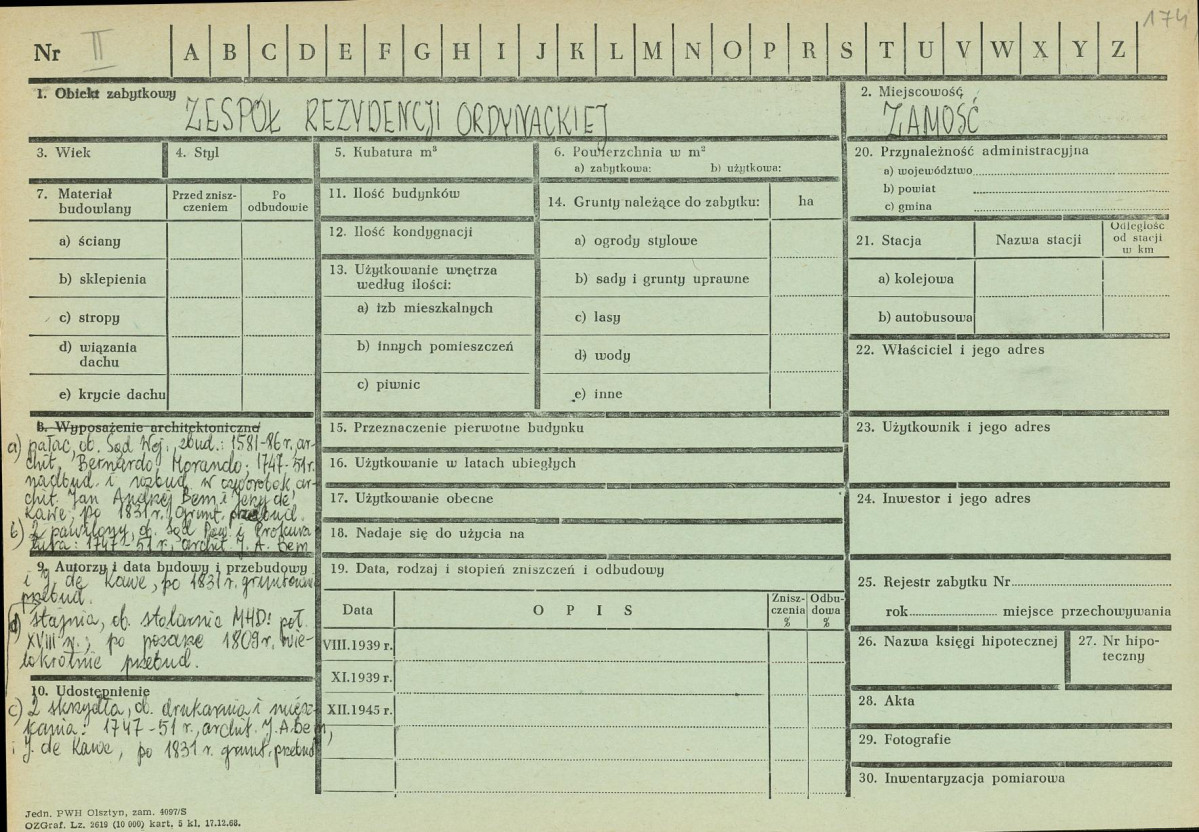 174
Nr II A B C D E F G H I J K L M N O P R S T U V W X Y Z
1. Obiekt zabytkowy ZESPÓŁ REZYDENCJI ORDYNACKIEJ
2. Miejscowość ZAMOŚĆ
3. Wiek
4. Styl
5. Kubatura m³
6. Powierzchnia w m²
a) zabytkowa: b) użytkowa:
7. Materiał budowlany
Przed znisz-
czeniem
Po
odbudowie
a) ściany
b) sklepienia
c) stropy
d) wiązania
dachu
e) krycie dachu
8. Wyposażenie architektoniczne
a) pałac, ob. Sąd Woj., zbud.: 1581-86 r., ar-
chit. Bernardo Morando; 1747-51 r.
nadbud. i rozbud. w czworobok, ar-
chit. Jan Andrzej Bem i Jerzy de
Kawe; po 1831 r. grunt. przebud.
b) 2 pawilony, ob. Sąd Pow. i Prokura-
tura: 1747-51 r., archit. J. A. Bem
9. Autorzy i data budowy i przebudowy
i J. de Kawe, po 1831 r. gruntownie
przebud.
d) stajnia, ob. stolarnia MHD: poł.
XVIII w., po pożarze 1809 r. wie-
lokrotnie przebud.
10. Udostępnienie
c) 2 skrzydła, ob. drukarnia i miesz-
kania: 1747-51 r., archit. J. A. Bem,
i J. de Kawe, po 1831 r. grunt. przebud.
11. Ilość budynków
12. Ilość kondygnacji
13. Użytkowanie wnętrza
według ilości:
a) izb mieszkalnych
b) innych pomieszczeń
c) piwnic
14. Grunty należące do zabytku: ha
a) ogrody stylowe
b) sady i grunty uprawne
c) lasy
d) wody
e) inne
15. Przeznaczenie pierwotne budynku
16. Użytkowanie w latach ubiegłych
17. Użytkowanie obecne
18. Nadaje się do użycia na
19. Data, rodzaj i stopień zniszczeń i odbudowy
Data
O P I S
Znisz-
czenia
%
Odbu-
dowa
%
VIII.1939 r.
XI.1939 r.
XII.1945 r.
20. Przynależność administracyjna
a) województwo
b) powiat
c) gmina
21. Stacja
Nazwa stacji
Odległość
od stacji
w km
a) kolejowa
b) autobusowa
22. Właściciel i jego adres
23. Użytkownik i jego adres
24. Inwestor i jego adres
25. Rejestr zabytku Nr
rok miejsce przechowywania
26. Nazwa księgi hipotecznej
27. Nr hipo-
teczny
28. Akta
29. Fotografie
30. Inwentaryzacja pomiarowa
Jedn. PWH Olsztyn, zam. 4097/S
OZGraf. Lz. 2619 (10 000) kart. 5 kl. 17.12.68.